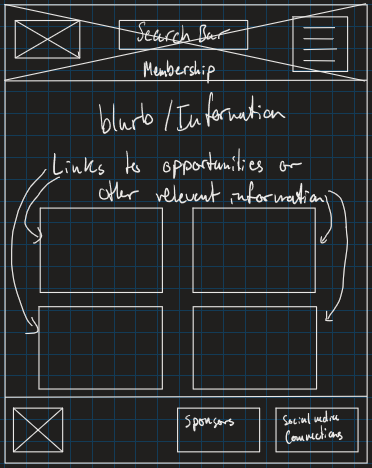 Search Bar
Membership
blurb / Information
Links to opportunities or
other relevant information
Sponsors
Social media
Connections